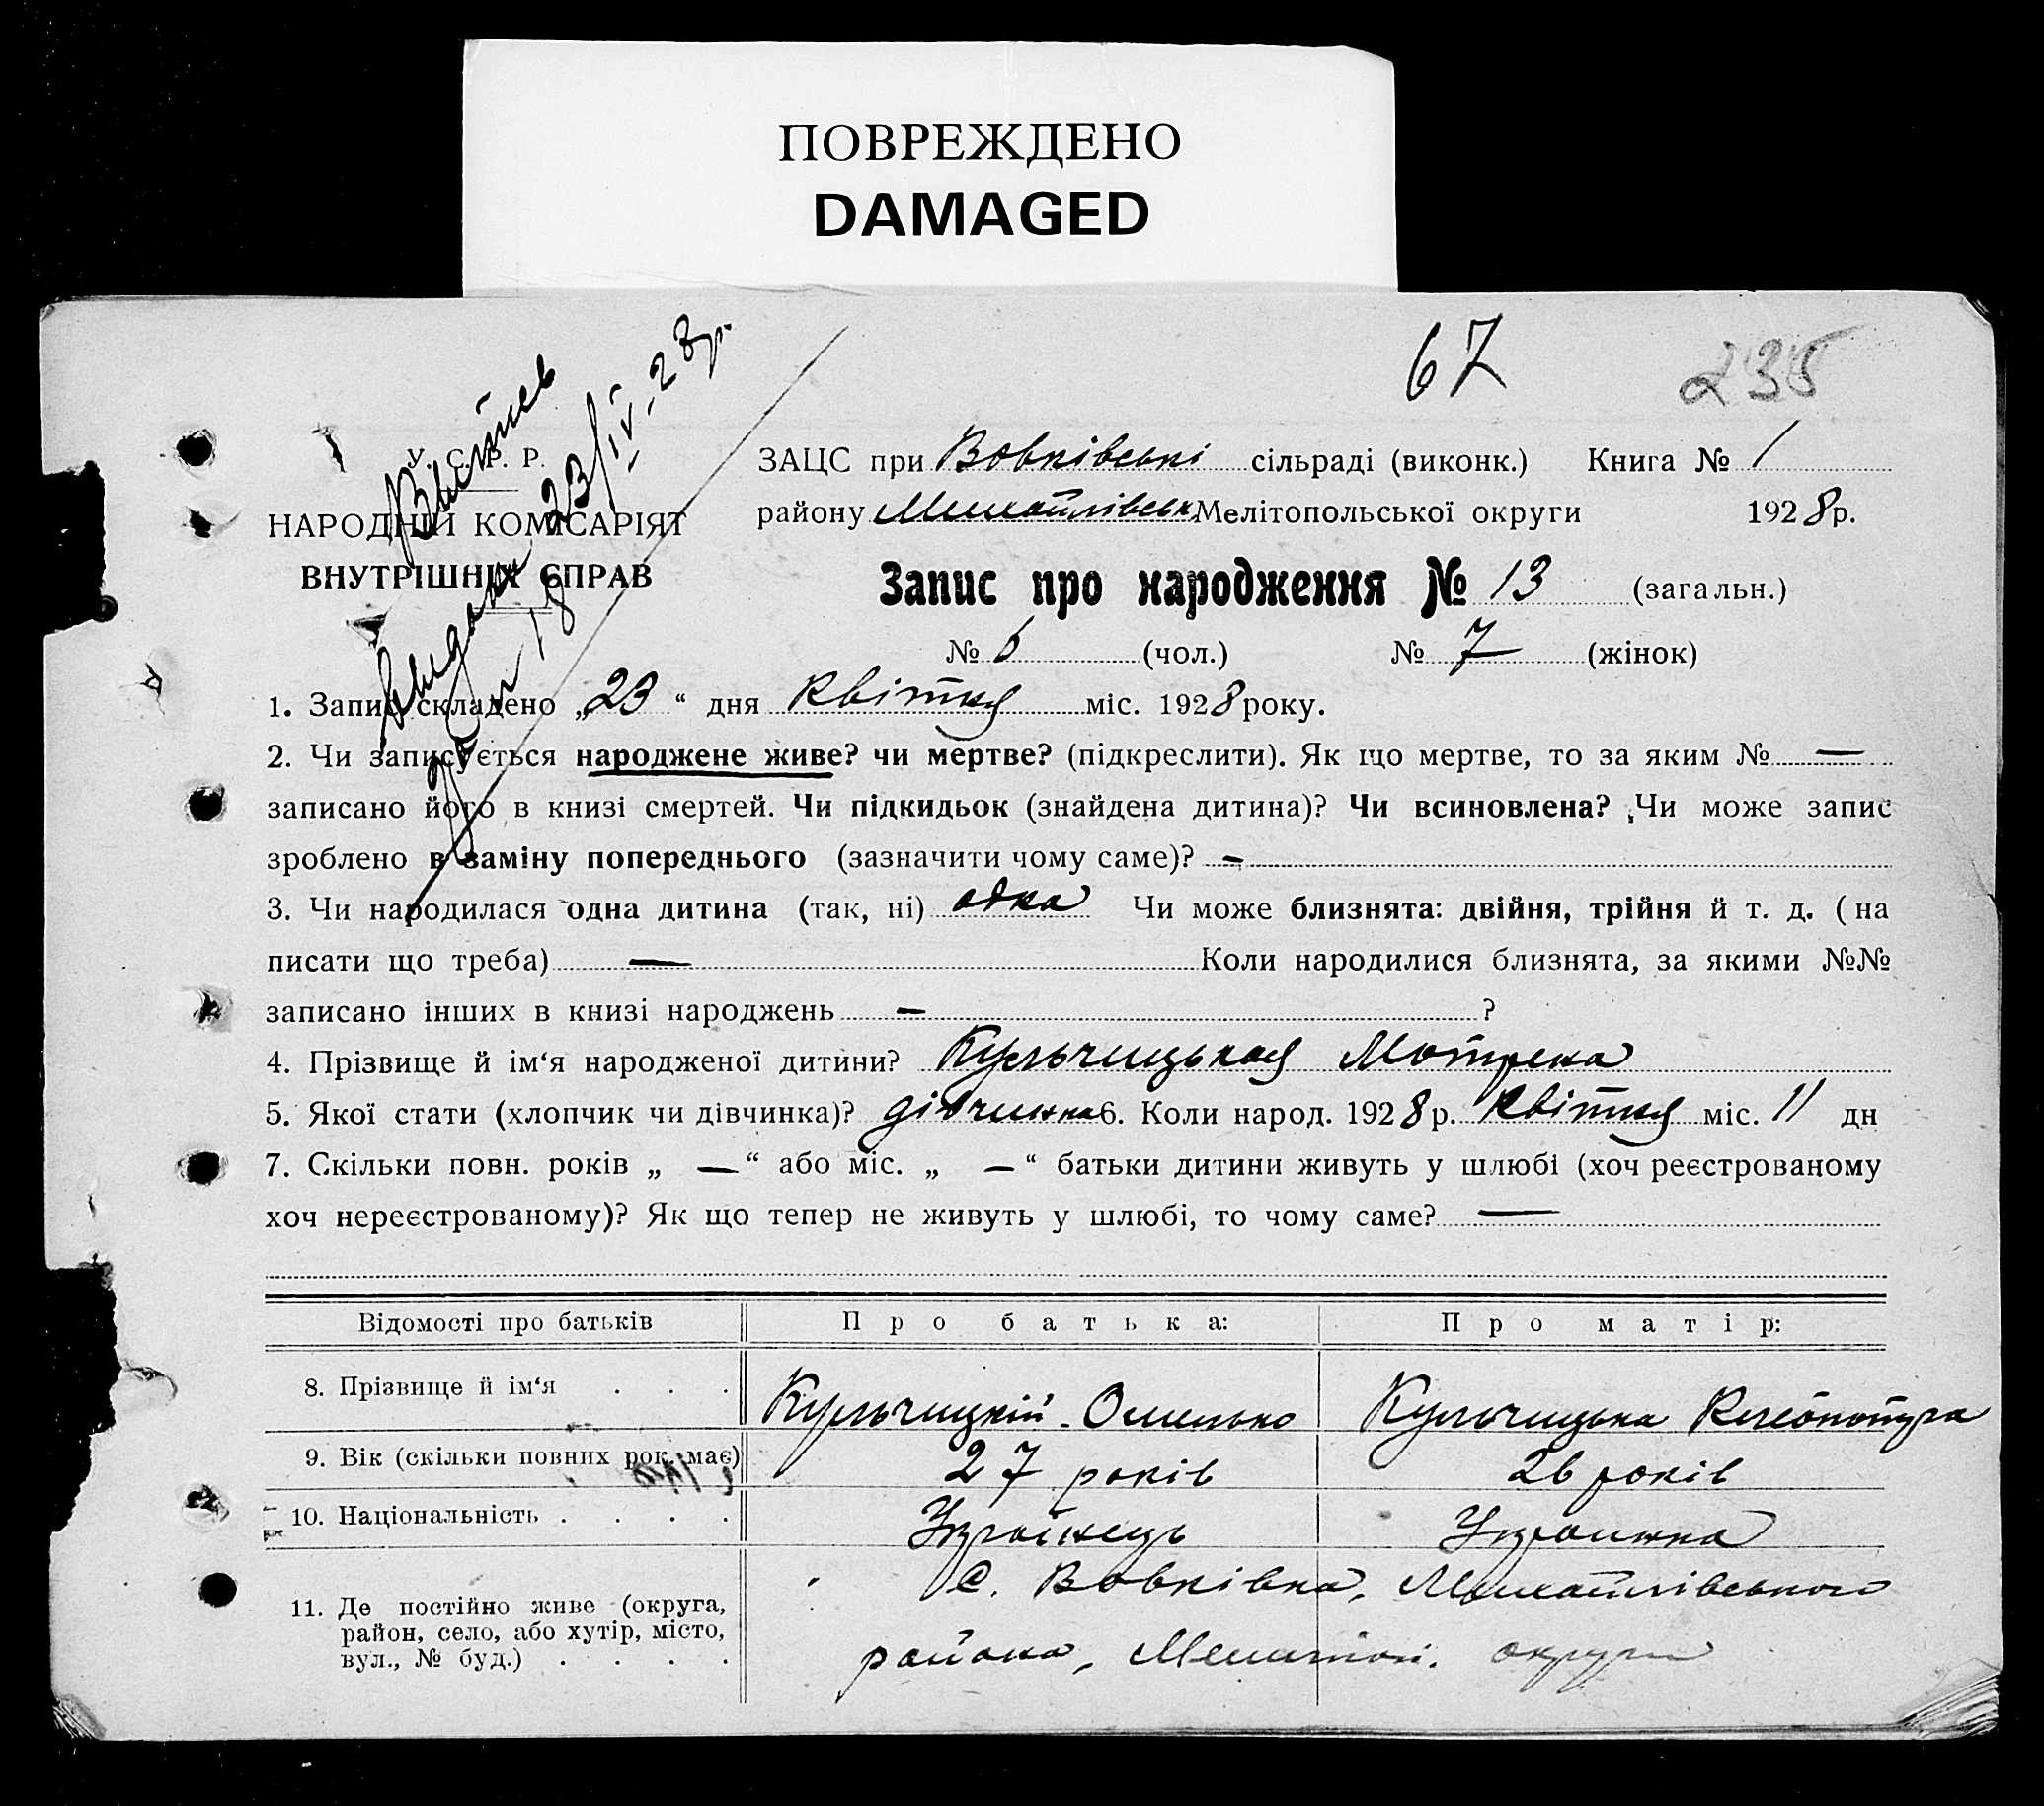 ПОВРЕЖДЕНО
DAMAGED
67 235
Витяг
23/IV-28р.
видани
№ 18
У. С. Р. Р.
НАРОДНІЙ КОМІСАРІЯТ
ВНУТРІШНІХ СПРАВ
ЗАЦС при Вовківські сільраді (виконк.) Книга № 1
району Михайлівськ Мелітопольської округи 1928р.
Запис про народження № 13 (загальн.)
№ 6 (чол.) № 7 (жінок)
1. Запис складено „23“ дня Квітня міс. 1928 року.
2. Чи записується народжене живе? чи мертве? (підкреслити). Як що мертве, то за яким № —
записано його в книзі смертей. Чи підкидьок (знайдена дитина)? Чи всиновлена? Чи може запис
зроблено в заміну попереднього (зазначити чому саме)? —
3. Чи народилася одна дитина (так, ні) одна Чи може близнята: двійня, трійня й т. д. (на
писати що треба) — Коли народилися близнята, за якими №№
записано інших в книзі народжень — ?
4. Прізвище й ім‘я народженої дитини? Кульчицькая Мотрена
5. Якої стати (хлопчик чи дівчинка)? дівчинка 6. Коли народ. 1928р. Квітня міс. 11 дн
7. Скільки повн. років „ — “ або міс. „ — “ батьки дитини живуть у шлюбі (хоч реєстрованому
хоч нереєстрованому)? Як що тепер не живуть у шлюбі, то чому саме? —
Відомості про батьків Про батька: Про матір:
8. Прізвище й ім‘я . . . Кульчицкій Омелько Кульчицька Клеопатра
9. Вік (скільки повних рок. має) 27 років 26 років
10. Національність . . . . Українець Украинка
11. Де постійно живе (округа,
район, село, або хутір, місто,
вул., № буд.) . . . .
С. Вовківка, Михайлівського
района, Мелітоп. округи